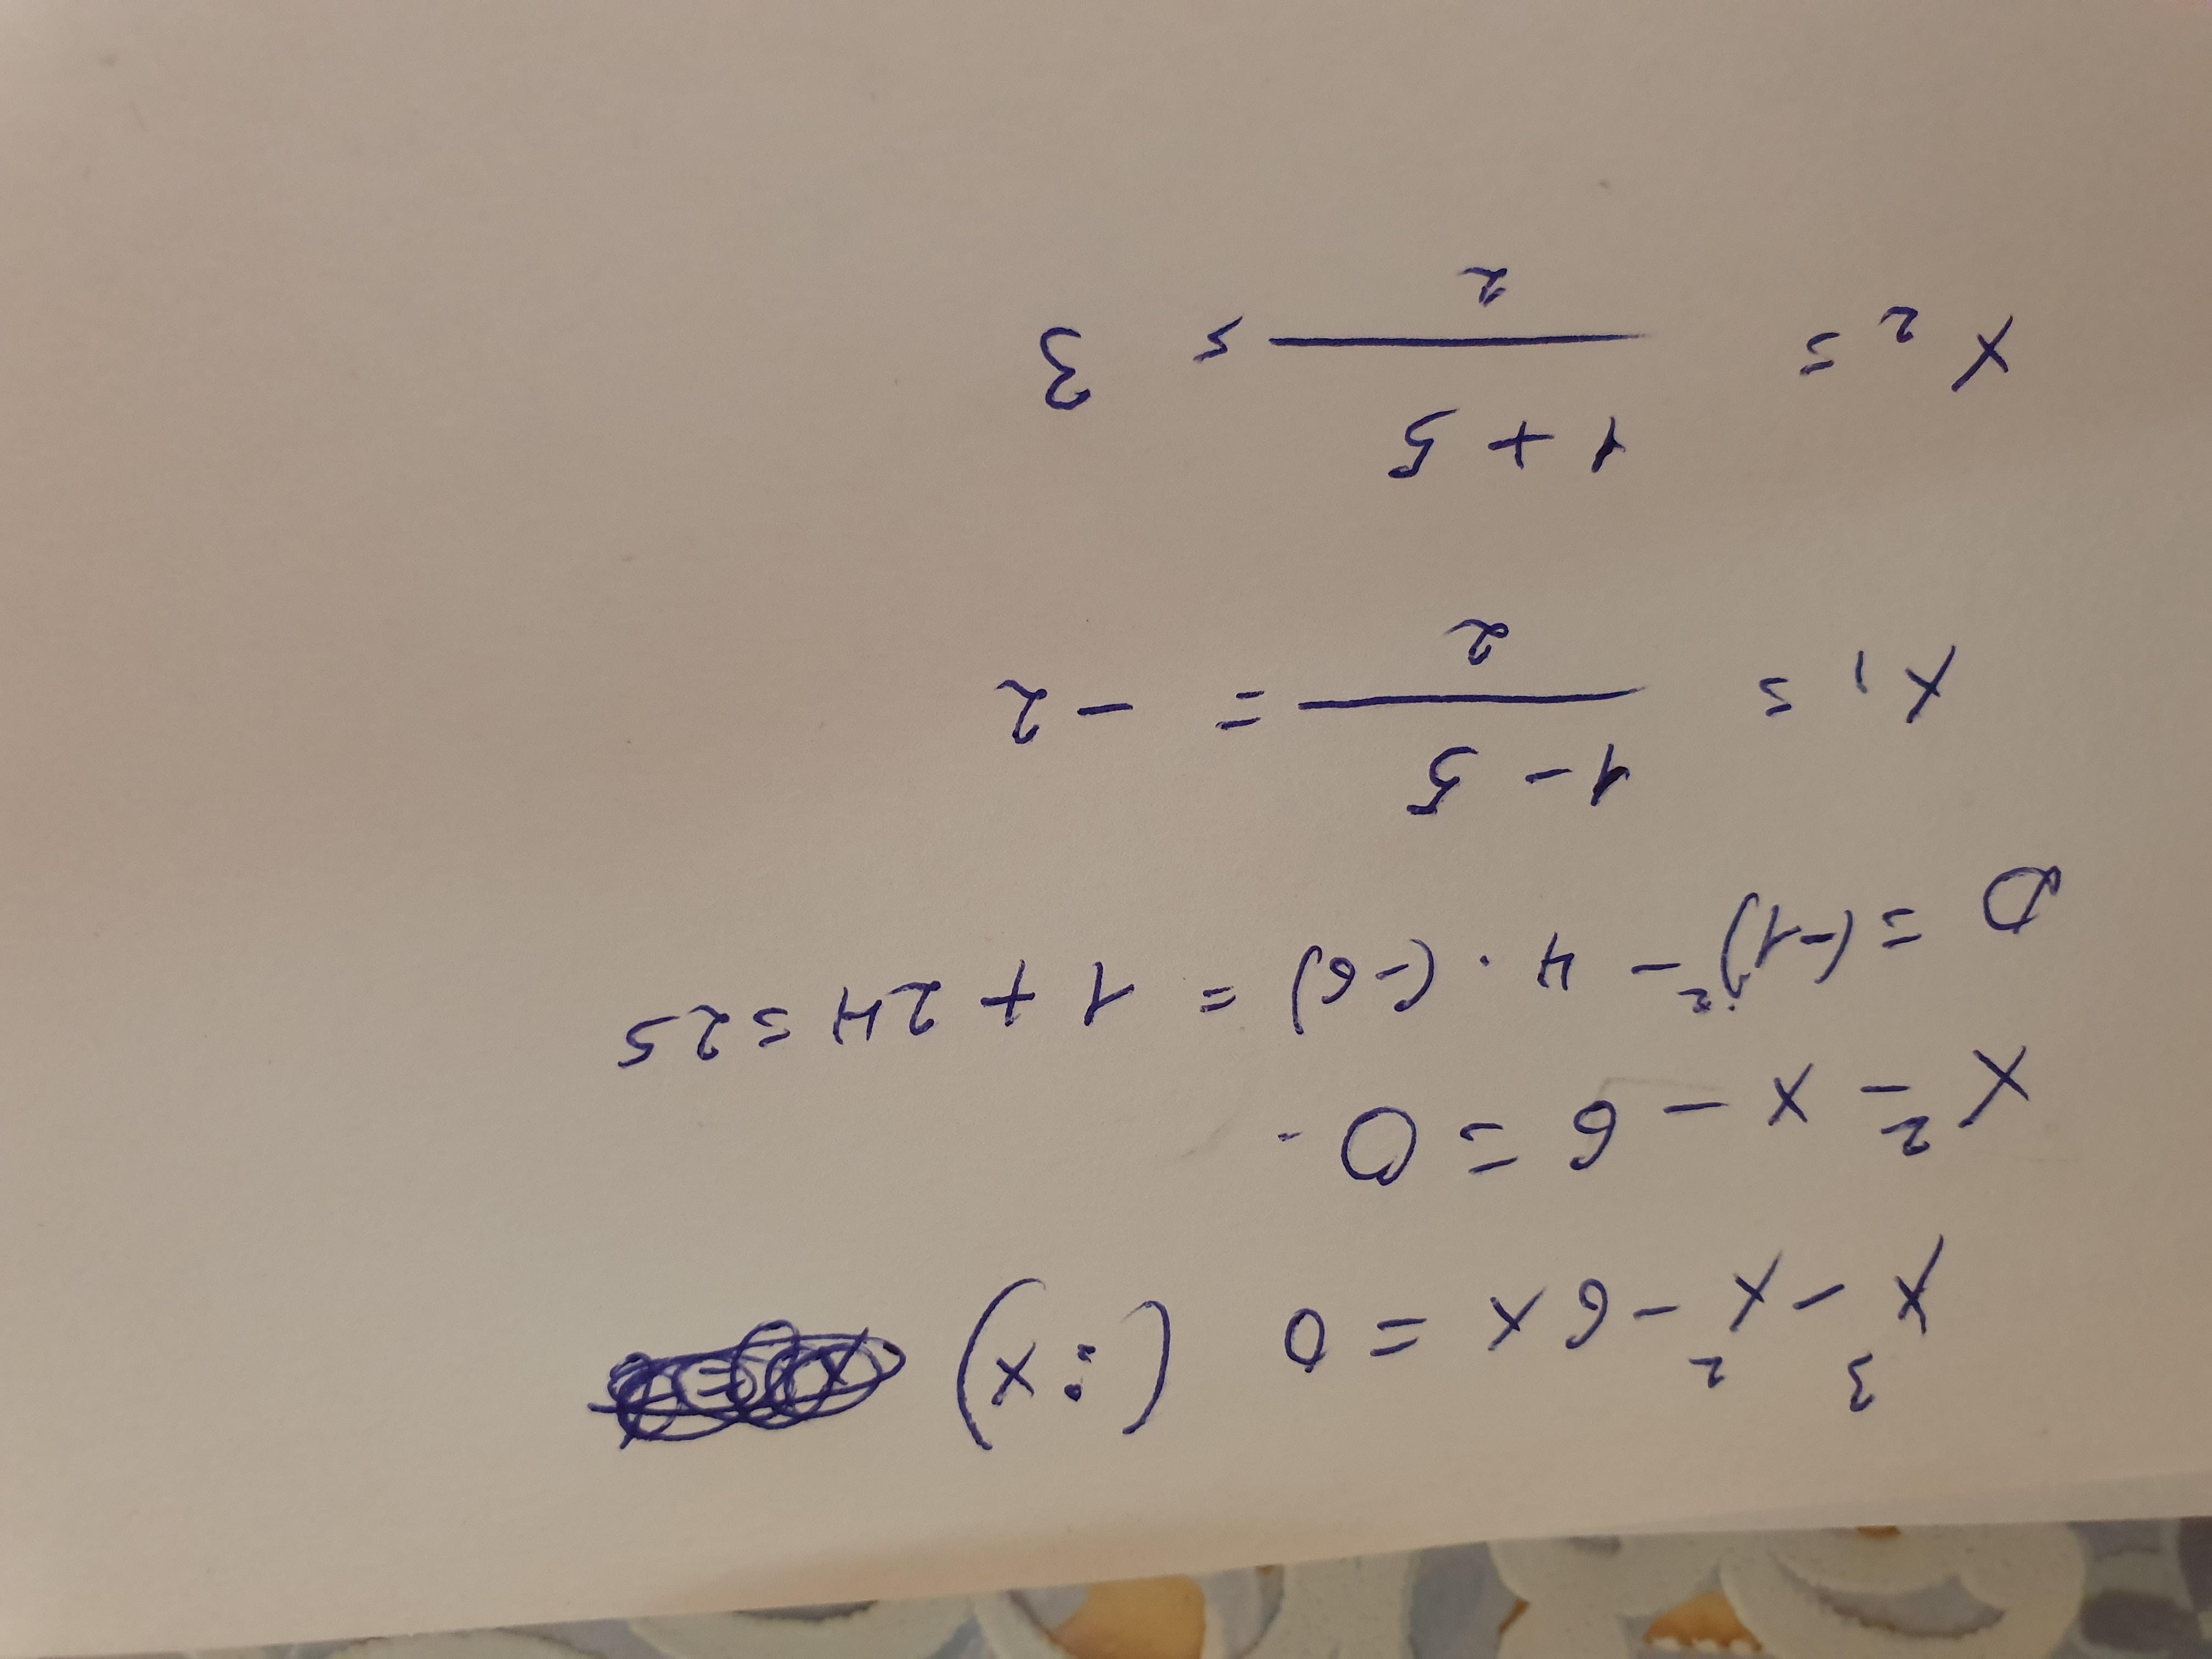 x³ - x² - 6x = 0 (:x)
x² - x - 6 = 0.
D = (-1)² - 4 · (-6) = 1 + 24 = 25
x₁ = (1 - 5)/2 = -2
x₂ = (1 + 5)/2 = 3